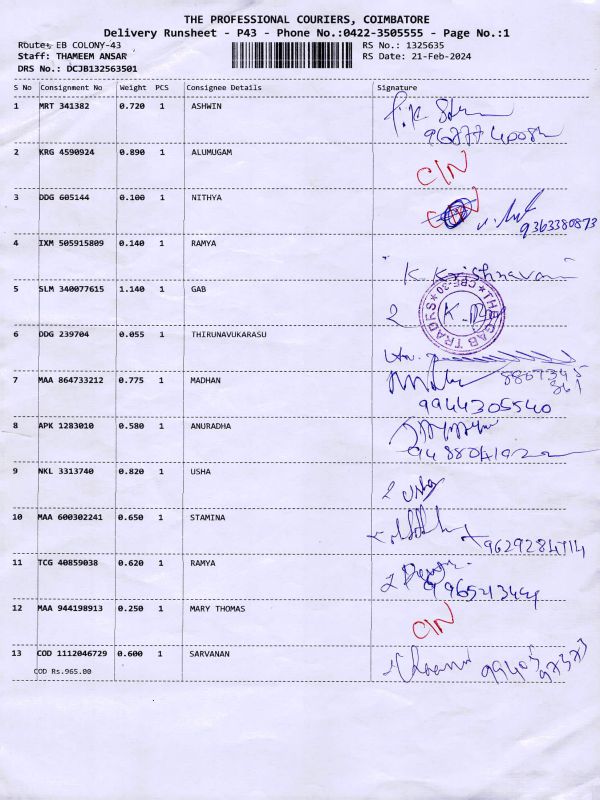 THE PROFESSIONAL COURIERS, COIMBATORE
Delivery Runsheet - P43 - Phone No.:0422-3505555 - Page No.:1
Route: EB COLONY-43 RS No.: 1325635
Staff: THAMEEM ANSAR RS Date: 21-Feb-2024
DRS No.: DCJB132563501
S No Consignment No Weight PCS Consignee Details Signature
1 MRT 341382 0.720 1 ASHWIN
2 KRG 4590924 0.890 1 ALUMUGAM
C/N
3 DDG 605144 0.100 1 NITHYA
9363380873
4 IXM 505915809 0.140 1 RAMYA
K. Krishnavani
5 SLM 340077615 1.140 1 GAB
THE GAB TRADRS CBE-30
6 DDG 239704 0.055 1 THIRUNAVUKARASU
7 MAA 864733212 0.775 1 MADHAN
9944305540
8 APK 1283010 0.580 1 ANURADHA
9 NKL 3313740 0.820 1 USHA
Usha
10 MAA 600302241 0.650 1 STAMINA
9629284714
11 TCG 40859038 0.620 1 RAMYA
12 MAA 944198913 0.250 1 MARY THOMAS
C/N
13 COD 1112046729 0.600 1 SARVANAN
COD Rs.965.00